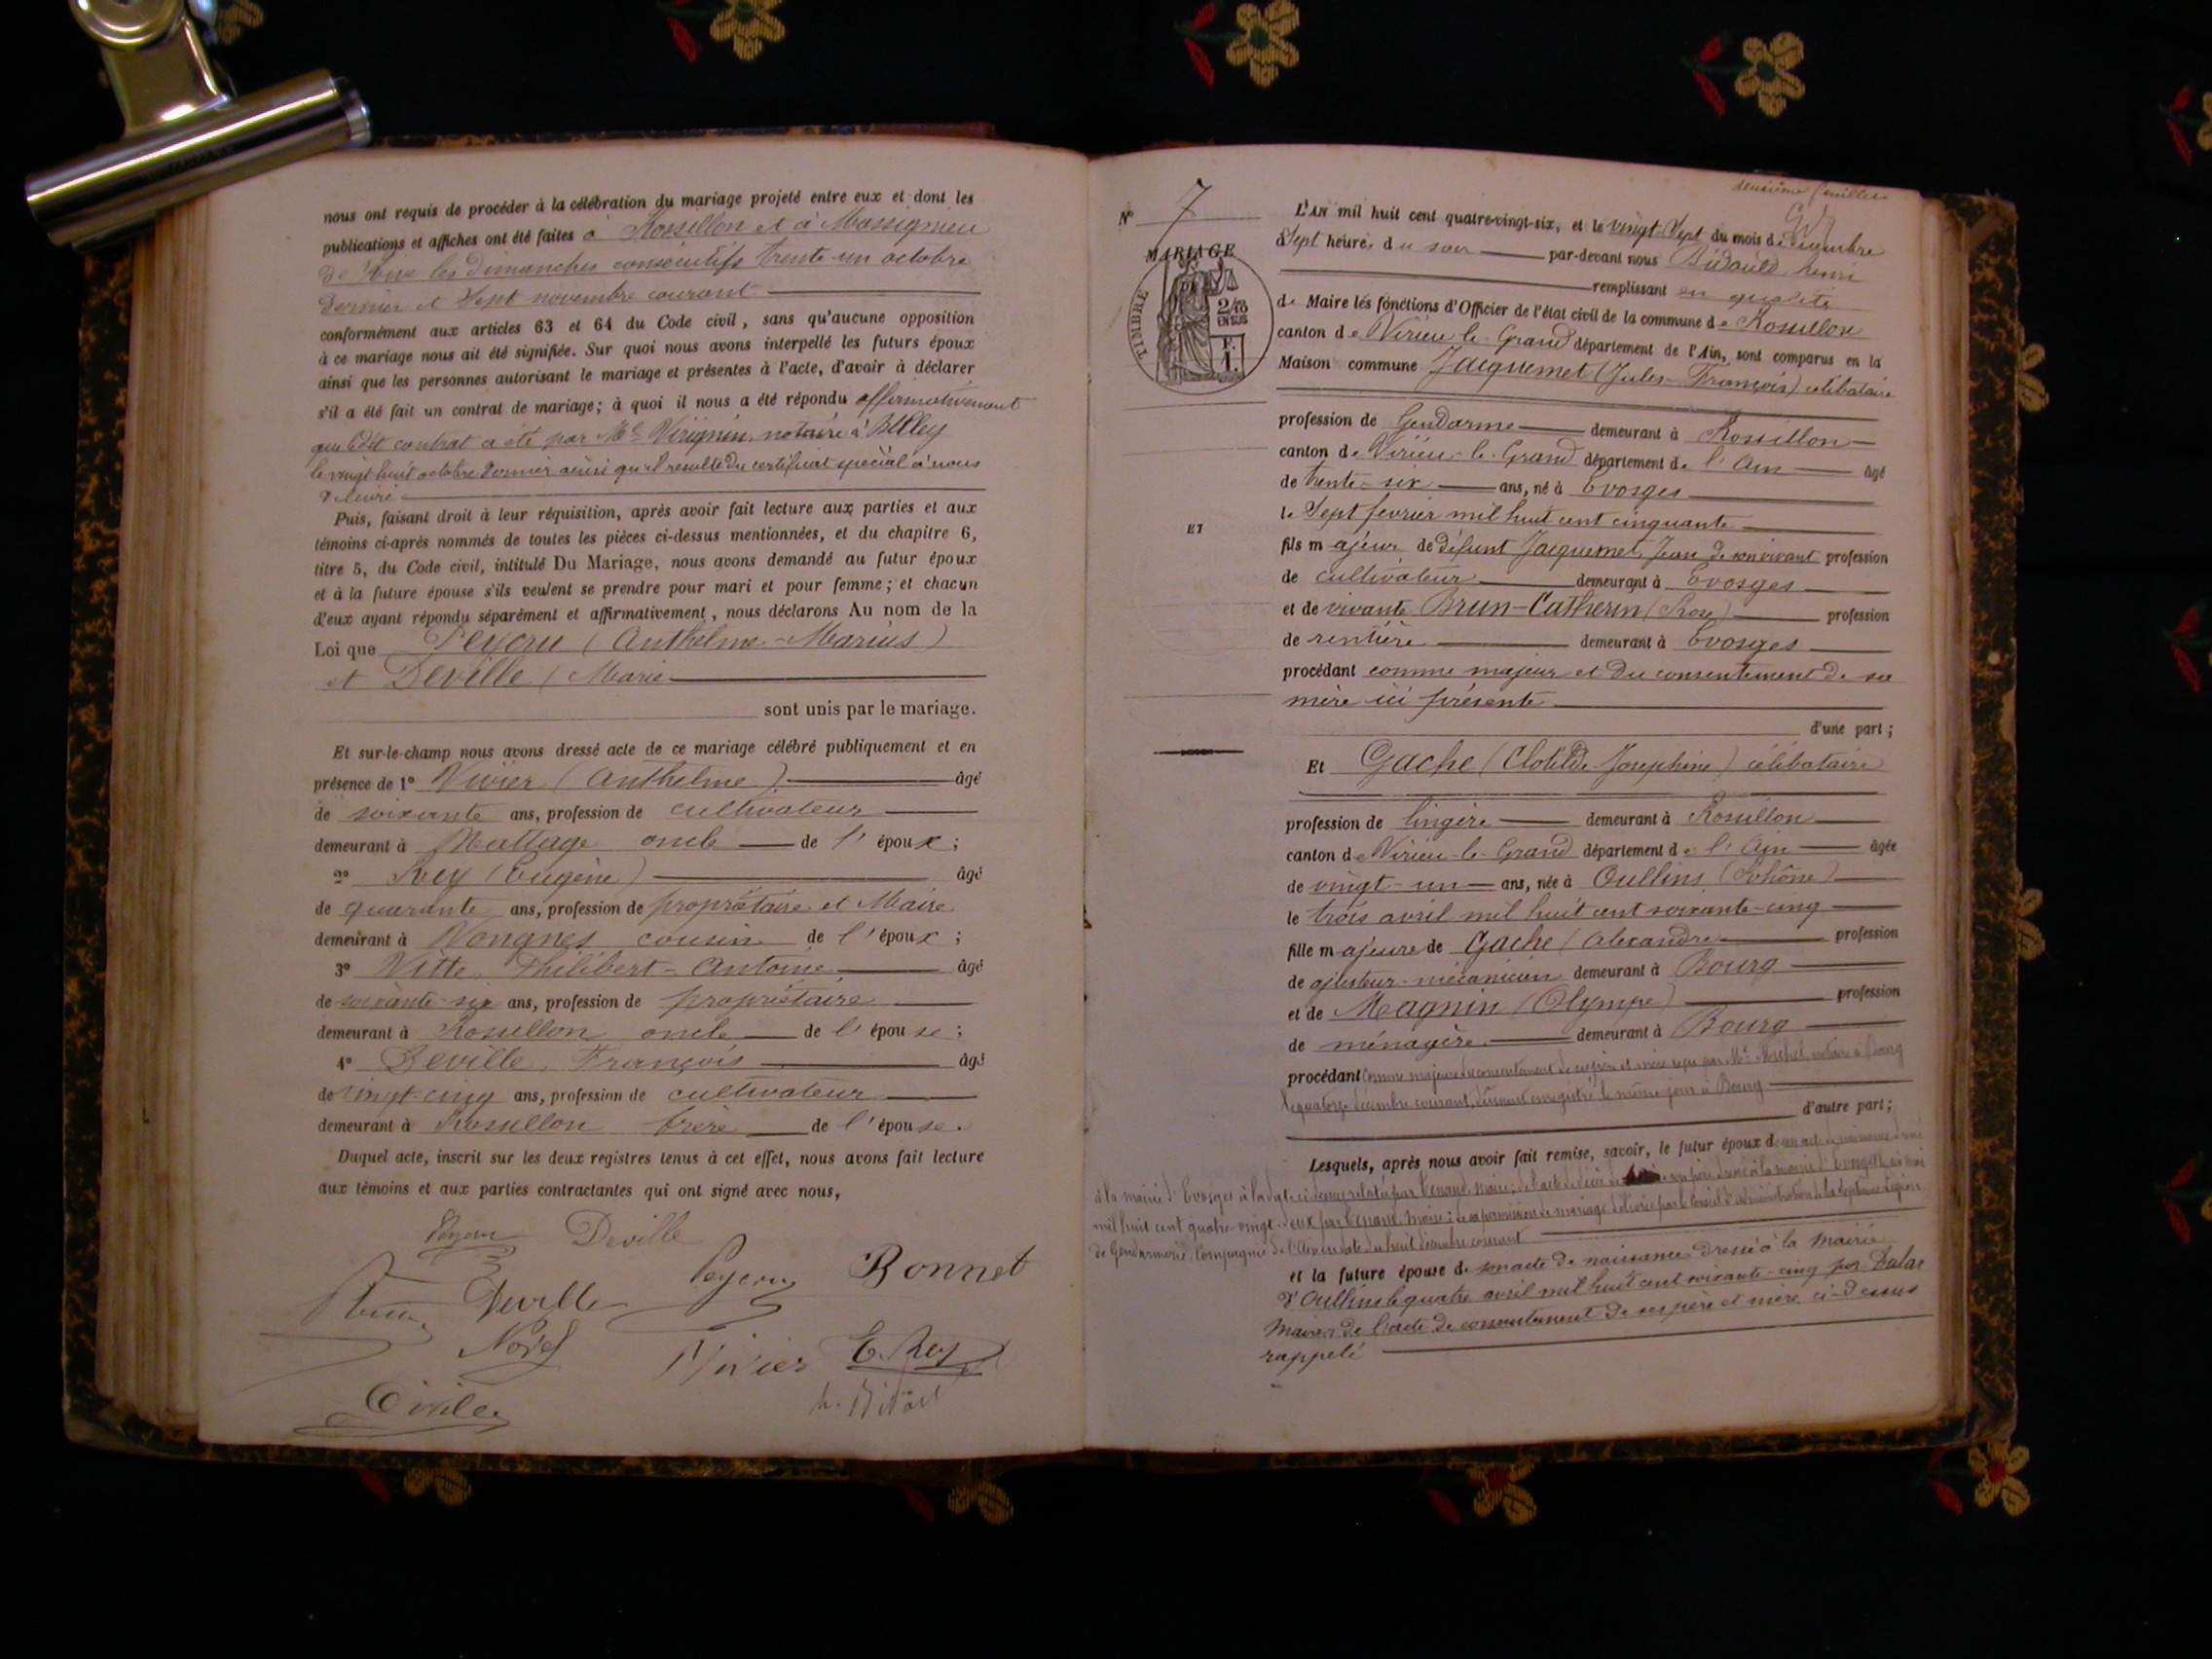 nous ont requis de procéder à la célébration du mariage projeté entre eux et dont les
publications et affiches ont été faites à Rossillon et à Massignieu
de Rive les dimanches consécutifs trente-un octobre
dernier et sept novembre courant
conformément aux articles 63 et 64 du Code civil, sans qu'aucune opposition
à ce mariage nous ait été signifiée. Sur quoi nous avons interpellé les futurs époux
ainsi que les personnes autorisant le mariage et présentes à l'acte, d'avoir à déclarer
s'il a été fait un contrat de mariage; à quoi il nous a été répondu affirmativement
que ledit contrat a été par Me notaire à Belley
le vingt huit octobre dernier ainsi qu'il résulte du certificat spécial à nous
délivré
Puis, faisant droit à leur réquisition, après avoir fait lecture aux parties et aux
témoins ci-après nommés de toutes les pièces ci-dessus mentionnées, et du chapitre 6,
titre 5, du Code civil, intitulé Du Mariage, nous avons demandé au futur époux
et à la future épouse s'ils veulent se prendre pour mari et pour femme; et chacun
d'eux ayant répondu séparément et affirmativement, nous déclarons Au nom de la
Loi que Peysru (Anthelme-Marius)
et Deville (Marie
sont unis par le mariage.
Et sur-le-champ nous avons dressé acte de ce mariage célébré publiquement et en
présence de 1° Vivier (Anthelme) âgé
de soixante ans, profession de cultivateur
demeurant à oncle de l'époux;
2° Rey (Eugène) âgé
de quarante ans, profession de propriétaire et Maire
demeurant à Vongnes cousin de l'époux;
3° Vitte, Philibert-Antoine âgé
de soixante-six ans, profession de propriétaire
demeurant à Rossillon oncle de l'épouse;
4° Deville, François âgé
de vingt-cinq ans, profession de cultivateur
demeurant à Rossillon frère de l'épouse.
Duquel acte, inscrit sur les deux registres tenus à cet effet, nous avons fait lecture
aux témoins et aux parties contractantes qui ont signé avec nous,
Deville
Bonnet
Deville
Vivier E. Rey
deuxième feuillet
N° 7
MARIAGE
TIMBRE
2/10
EN SUS
F.
1.
ET
L'AN mil huit cent quatre-vingt-six, et le vingt-sept du mois de décembre
à sept heures du soir par-devant nous Bidauld henri
remplissant en qualité
de Maire les fonctions d'Officier de l'état civil de la commune de Rossillon
canton de Virieu-le-Grand département de l'Ain, sont comparus en la
Maison commune Jacquemet (Jules-François) célibataire
profession de Gendarme demeurant à Rossillon
canton de Virieu-le-Grand département de l'Ain âgé
de trente-six ans, né à Evosges
le sept février mil huit cent cinquante
fils majeur de défunt Jacquemet, Jean de son vivant profession
de cultivateur demeurant à Evosges
et de vivante Brun-Catherin (Rose) profession
de rentière demeurant à Evosges
procédant comme majeur et du consentement de sa
mère ici présente
d'une part;
Et Gache (Clotilde Josephine) célibataire
profession de lingère demeurant à Rossillon
canton de Virieu-le-Grand département de l'Ain âgée
de vingt-un ans, née à Oullins (Rhône)
le trois avril mil huit cent soixante-cinq
fille majeure de Gache (Alexandre profession
de ajusteur-mécanicien demeurant à Bourg
et de Magnin (Olympe) profession
de ménagère demeurant à Bourg
procédant comme majeure du consentement de ses père et mère reçu par Me notaire à Bourg
le quatorze décembre courant, dûment enregistré le même jour à Bourg
d'autre part;
Lesquels, après nous avoir fait remise, savoir, le futur époux de son acte de naissance dressé
à la mairie d'Evosges à la date ci-dessus relatée par maire; de l'acte de décès de son père dressé à la mairie d'Evosges
mil huit cent quatre vingt-deux par maire; de sa permission de mariage délivrée par le Conseil d'administration de la septième légion
de Gendarmerie, compagnie de l'Ain en date du huit décembre courant
et la future épouse de son acte de naissance dressé à la mairie
d'Oullins le quatre avril mil huit cent soixante-cinq par
Maire, de l'acte de consentement de ses père et mère ci-dessus
rappelé